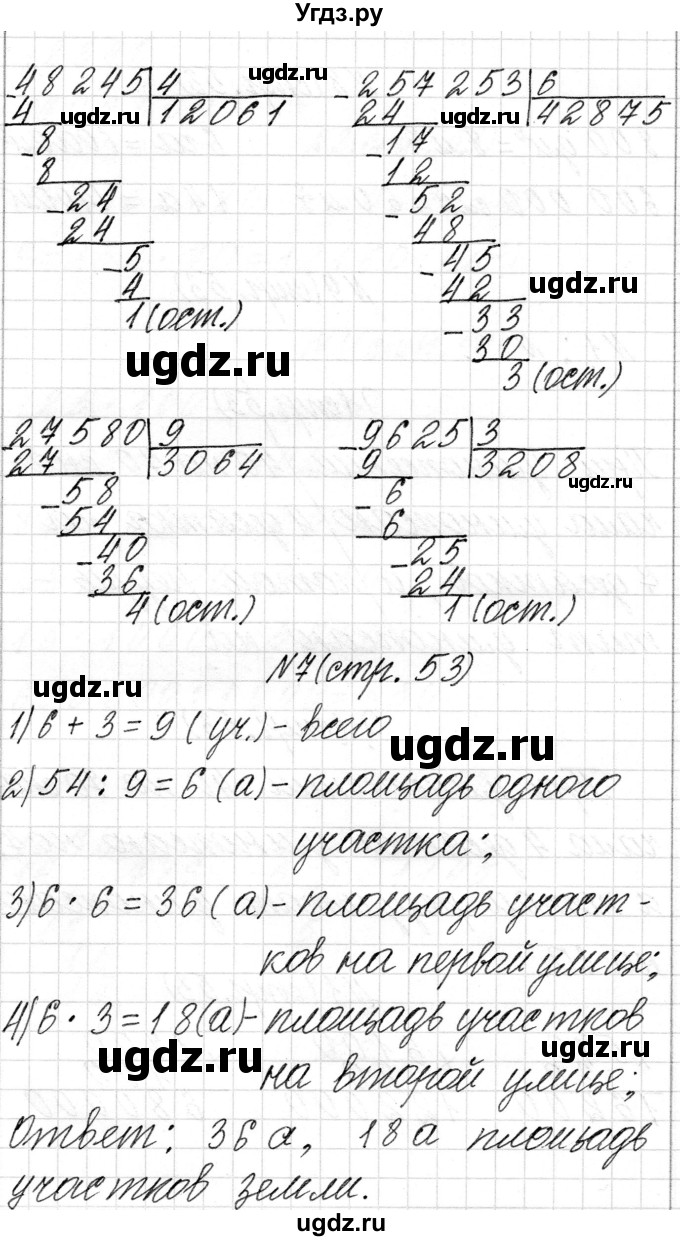 Угдз.ру
48245 | 4
ugdz.ru
4 ugdz.ru 12061
- 8
8
- 24
24
- 5
4
1 (ост.)
ugdz.ru
- 257253 | 6
24 ugdz.ru 42875
- 17
12
- 52
48
- 45
ugdz.ru
42
- 33
30
3 (ост.)
- 27580 | 9
27 3064
- 58
54
- 40
36
4 (ост.)
- 9625 | 3
9 3208
ugdz.ru
- 6
6
- 25
24
1 (ост.)
N7 (стр. 53)
ugdz.ru
1) 6 + 3 = 9 (уч.) - всего
ugdz.ru
2) 54 : 9 = 6 (а) - площадь одного
участка;
ugdz.ru
3) 6 · 6 = 36 (а) - площадь участ-
ков на первой улице;
4) 6 · 3 = 18 (а) - площадь участков
ugdz.ru
ugdz.ru
на второй улице;
Ответ: 36 а, 18 а площадь
участков земли.
ugdz.ru